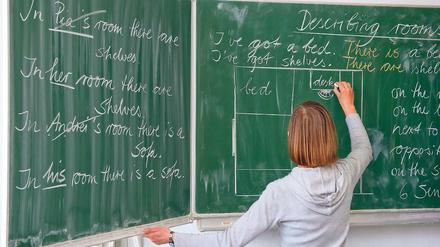 In Pia's room there are
shelves
In her room there are
shelves.
In Andrei's room there is a
sofa.
In his room there is a sofa.
Describing room
I've got a bed. There is a be
I've got shelves. There are shel
bed
desk
on the
on the
next to
opposit
on the
6 Sen